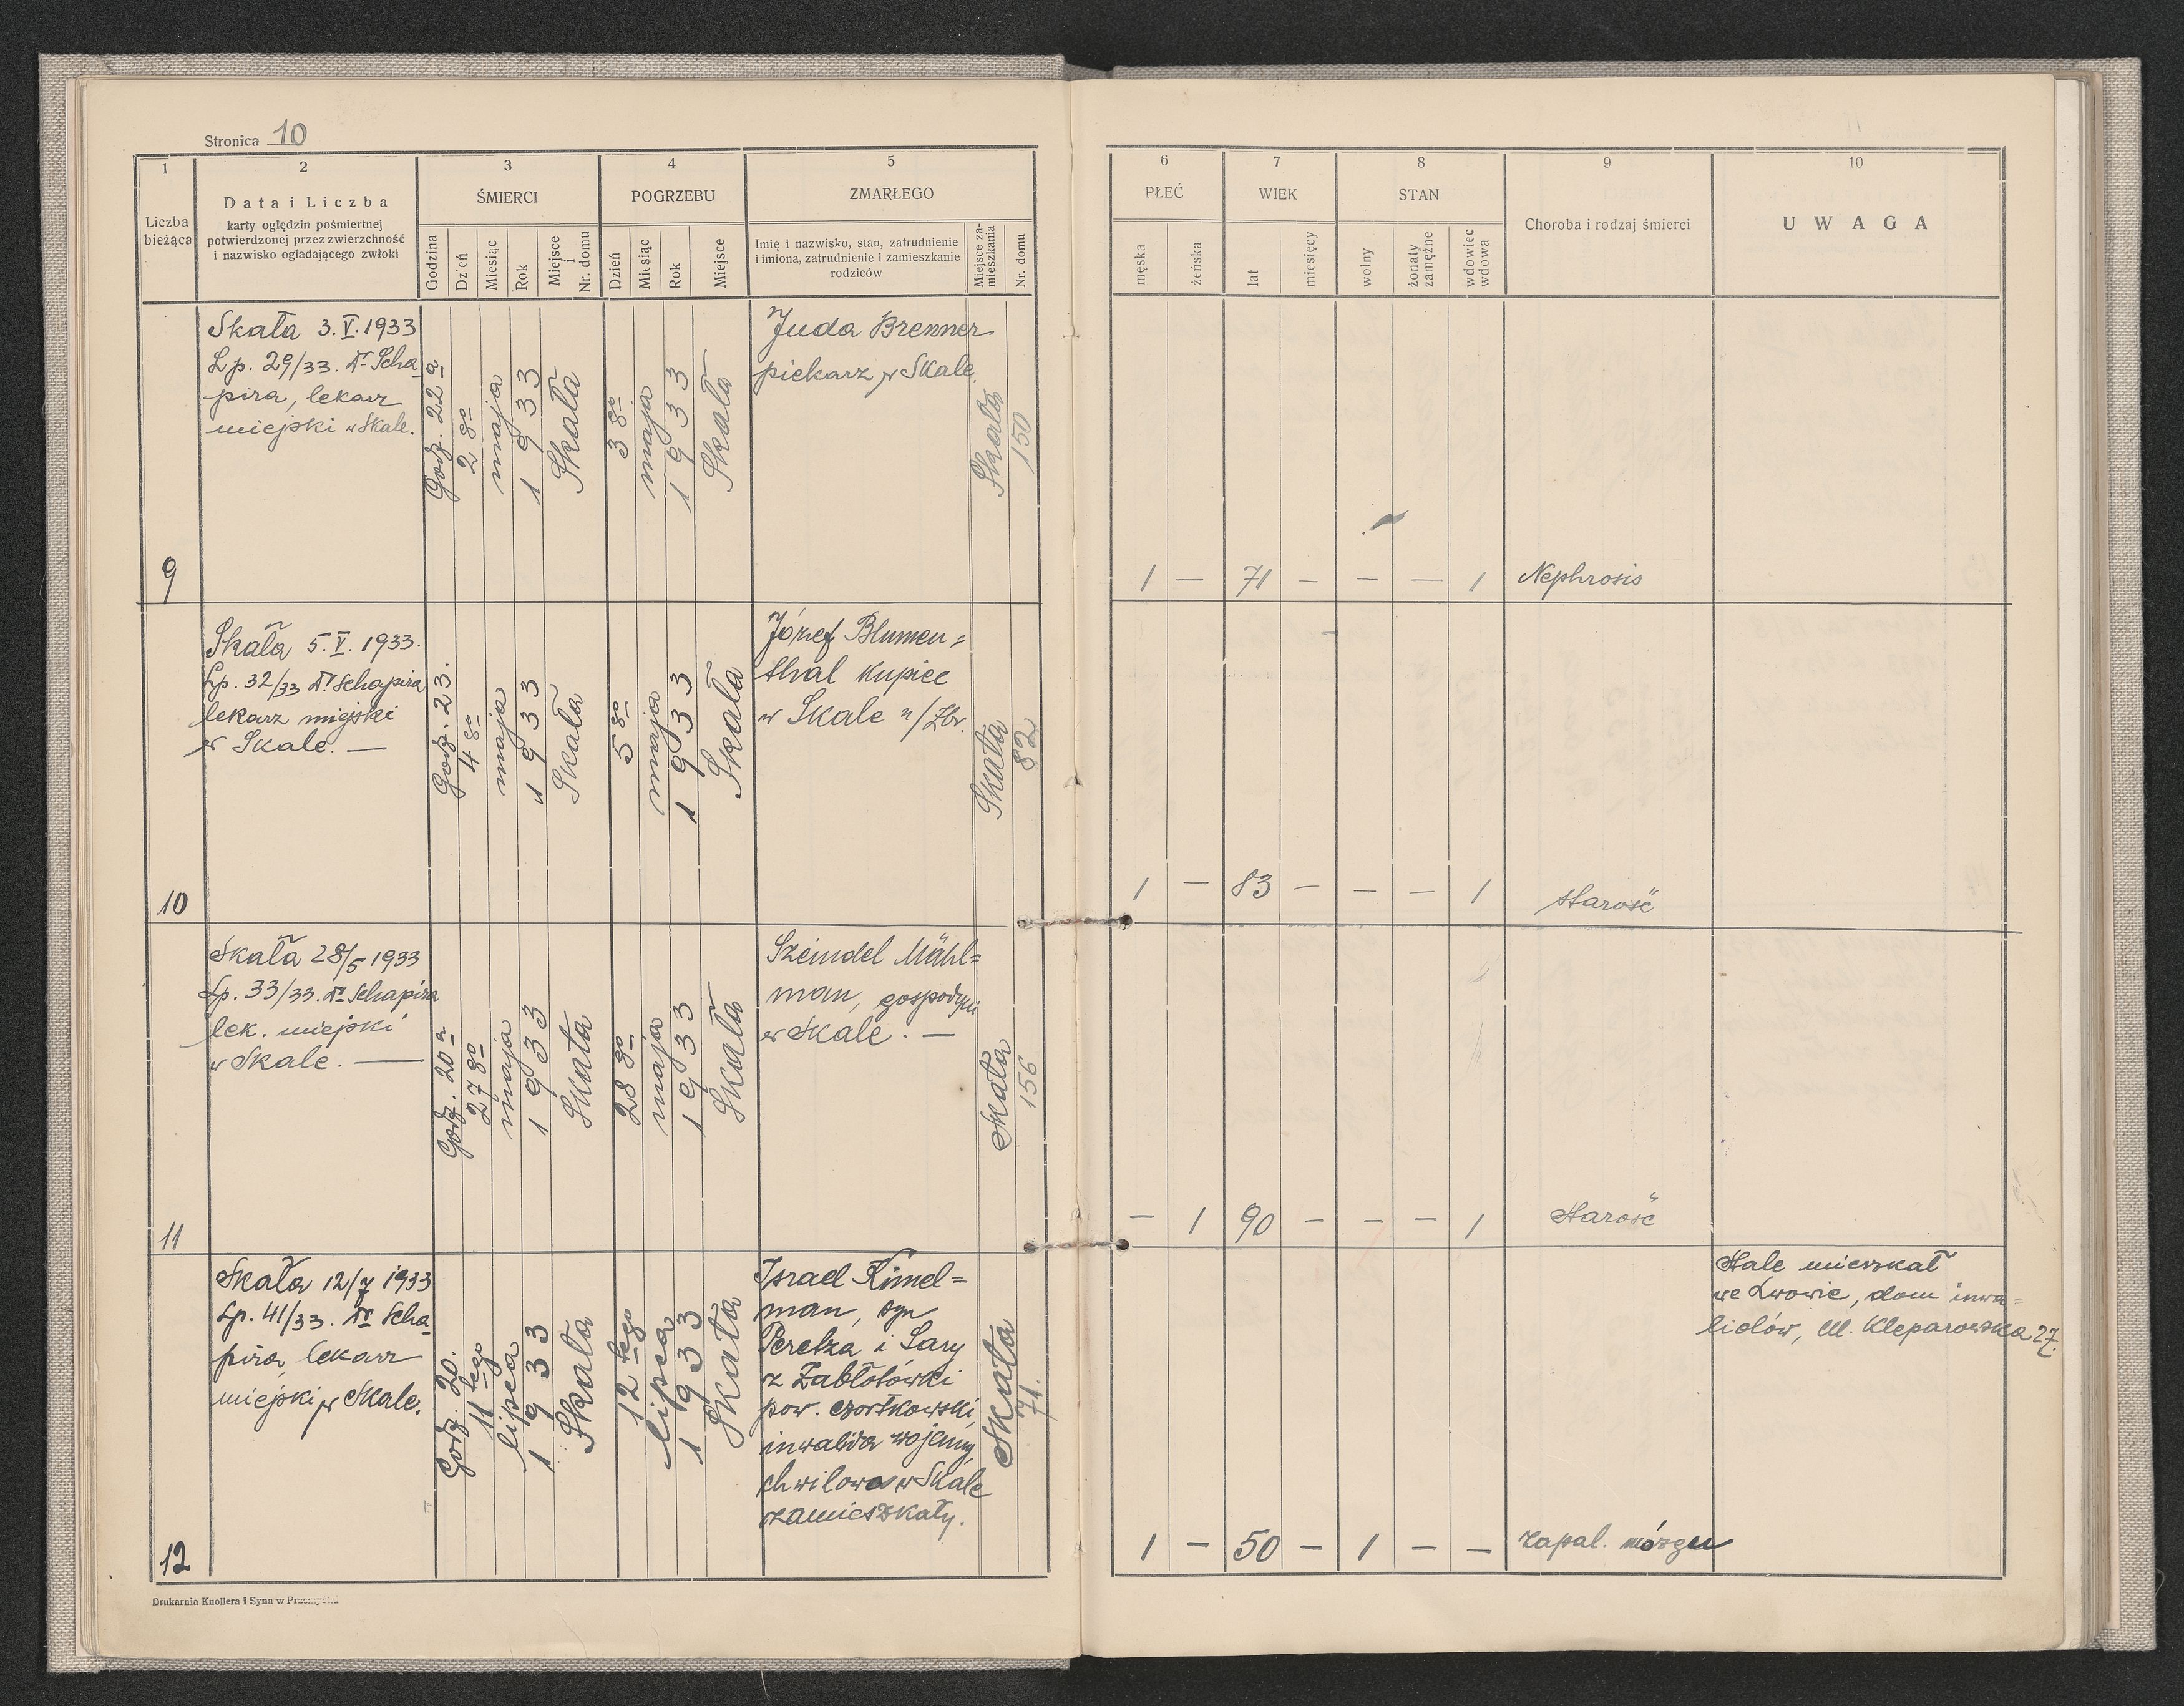 Stronica 10
1
2
3
4
5
6
7
8
9
10
Liczba
bieżąca
Data i Liczba
karty oględzin pośmiertnej
potwierdzonej przez zwierzchność
i nazwisko ogladającego zwłoki
ŚMIERCI
Godzina
Dzień
Miesiąc
Rok
Miejsce
i
Nr. domu
POGRZEBU
Dzień
Miesiąc
Rok
Miejsce
ZMARŁEGO
Imię i nazwisko, stan, zatrudnienie
i imiona, zatrudnienie i zamieszkanie
rodziców
Miejsce za-
mieszkania
Nr. domu
PŁEĆ
męska
żeńska
WIEK
lat
miesięcy
STAN
wolny
żonaty
zamężne
wdowiec
wdowa
Choroba i rodzaj śmierci
UWAGA
9
Skała 3.V.1933
Lp. 29/33. Dr. Scha
pira, lekarz
miejski w Skale.
Godz. 22a
2go
maja
1933
Skała
3go
maja
1933
Skała
Juda Brenner
piekarz w Skale
Skała
150
1 — 71 — — — 1 Nephrosis
10
Skała 5.V.1933.
Lp. 32/33 Dr Schapira
lekarz miejski
w Skale. —
Godz. 23.
4go
maja
1933
Skała
5go
maja
1933
Skała
Józef Blumen=
thal kupiec
w Skale n/Zbr.
Skała
82
1 — 83 — — — 1 starość
11
Skała 28/5 1933
Lp. 33/33. Dr Schapira
lek. miejski
w Skale. —
Godz. 20a
27go
maja
1933
Skała
28go
maja
1933
Skała
Szeindel Mähl=
man, gospodyni
w Skale. —
Skała
156
— 1 90 — — — 1 starość
12
Skała 12/7 1933
Lp. 41/33. Dr Scha
pira, lekarz
miejski w Skale.
Godz. 20.
11 tego
lipca
1933
Skała
12 tego
lipca
1933
Skała
Israel Kimel=
man, syn
Peretza i Sary
z Zabłotówki
pow. czortkowski,
inwalida wojenny,
chwilowo w Skale
zamieszkały.
Skała
71.
1 — 50 — 1 — — zapal. mózgu
Stale mieszkał
we Lwowie, dom inwa=
lidów, Ul. Kleparowska 27.
Drukarnia Knollera i Syna w Przemyślu.